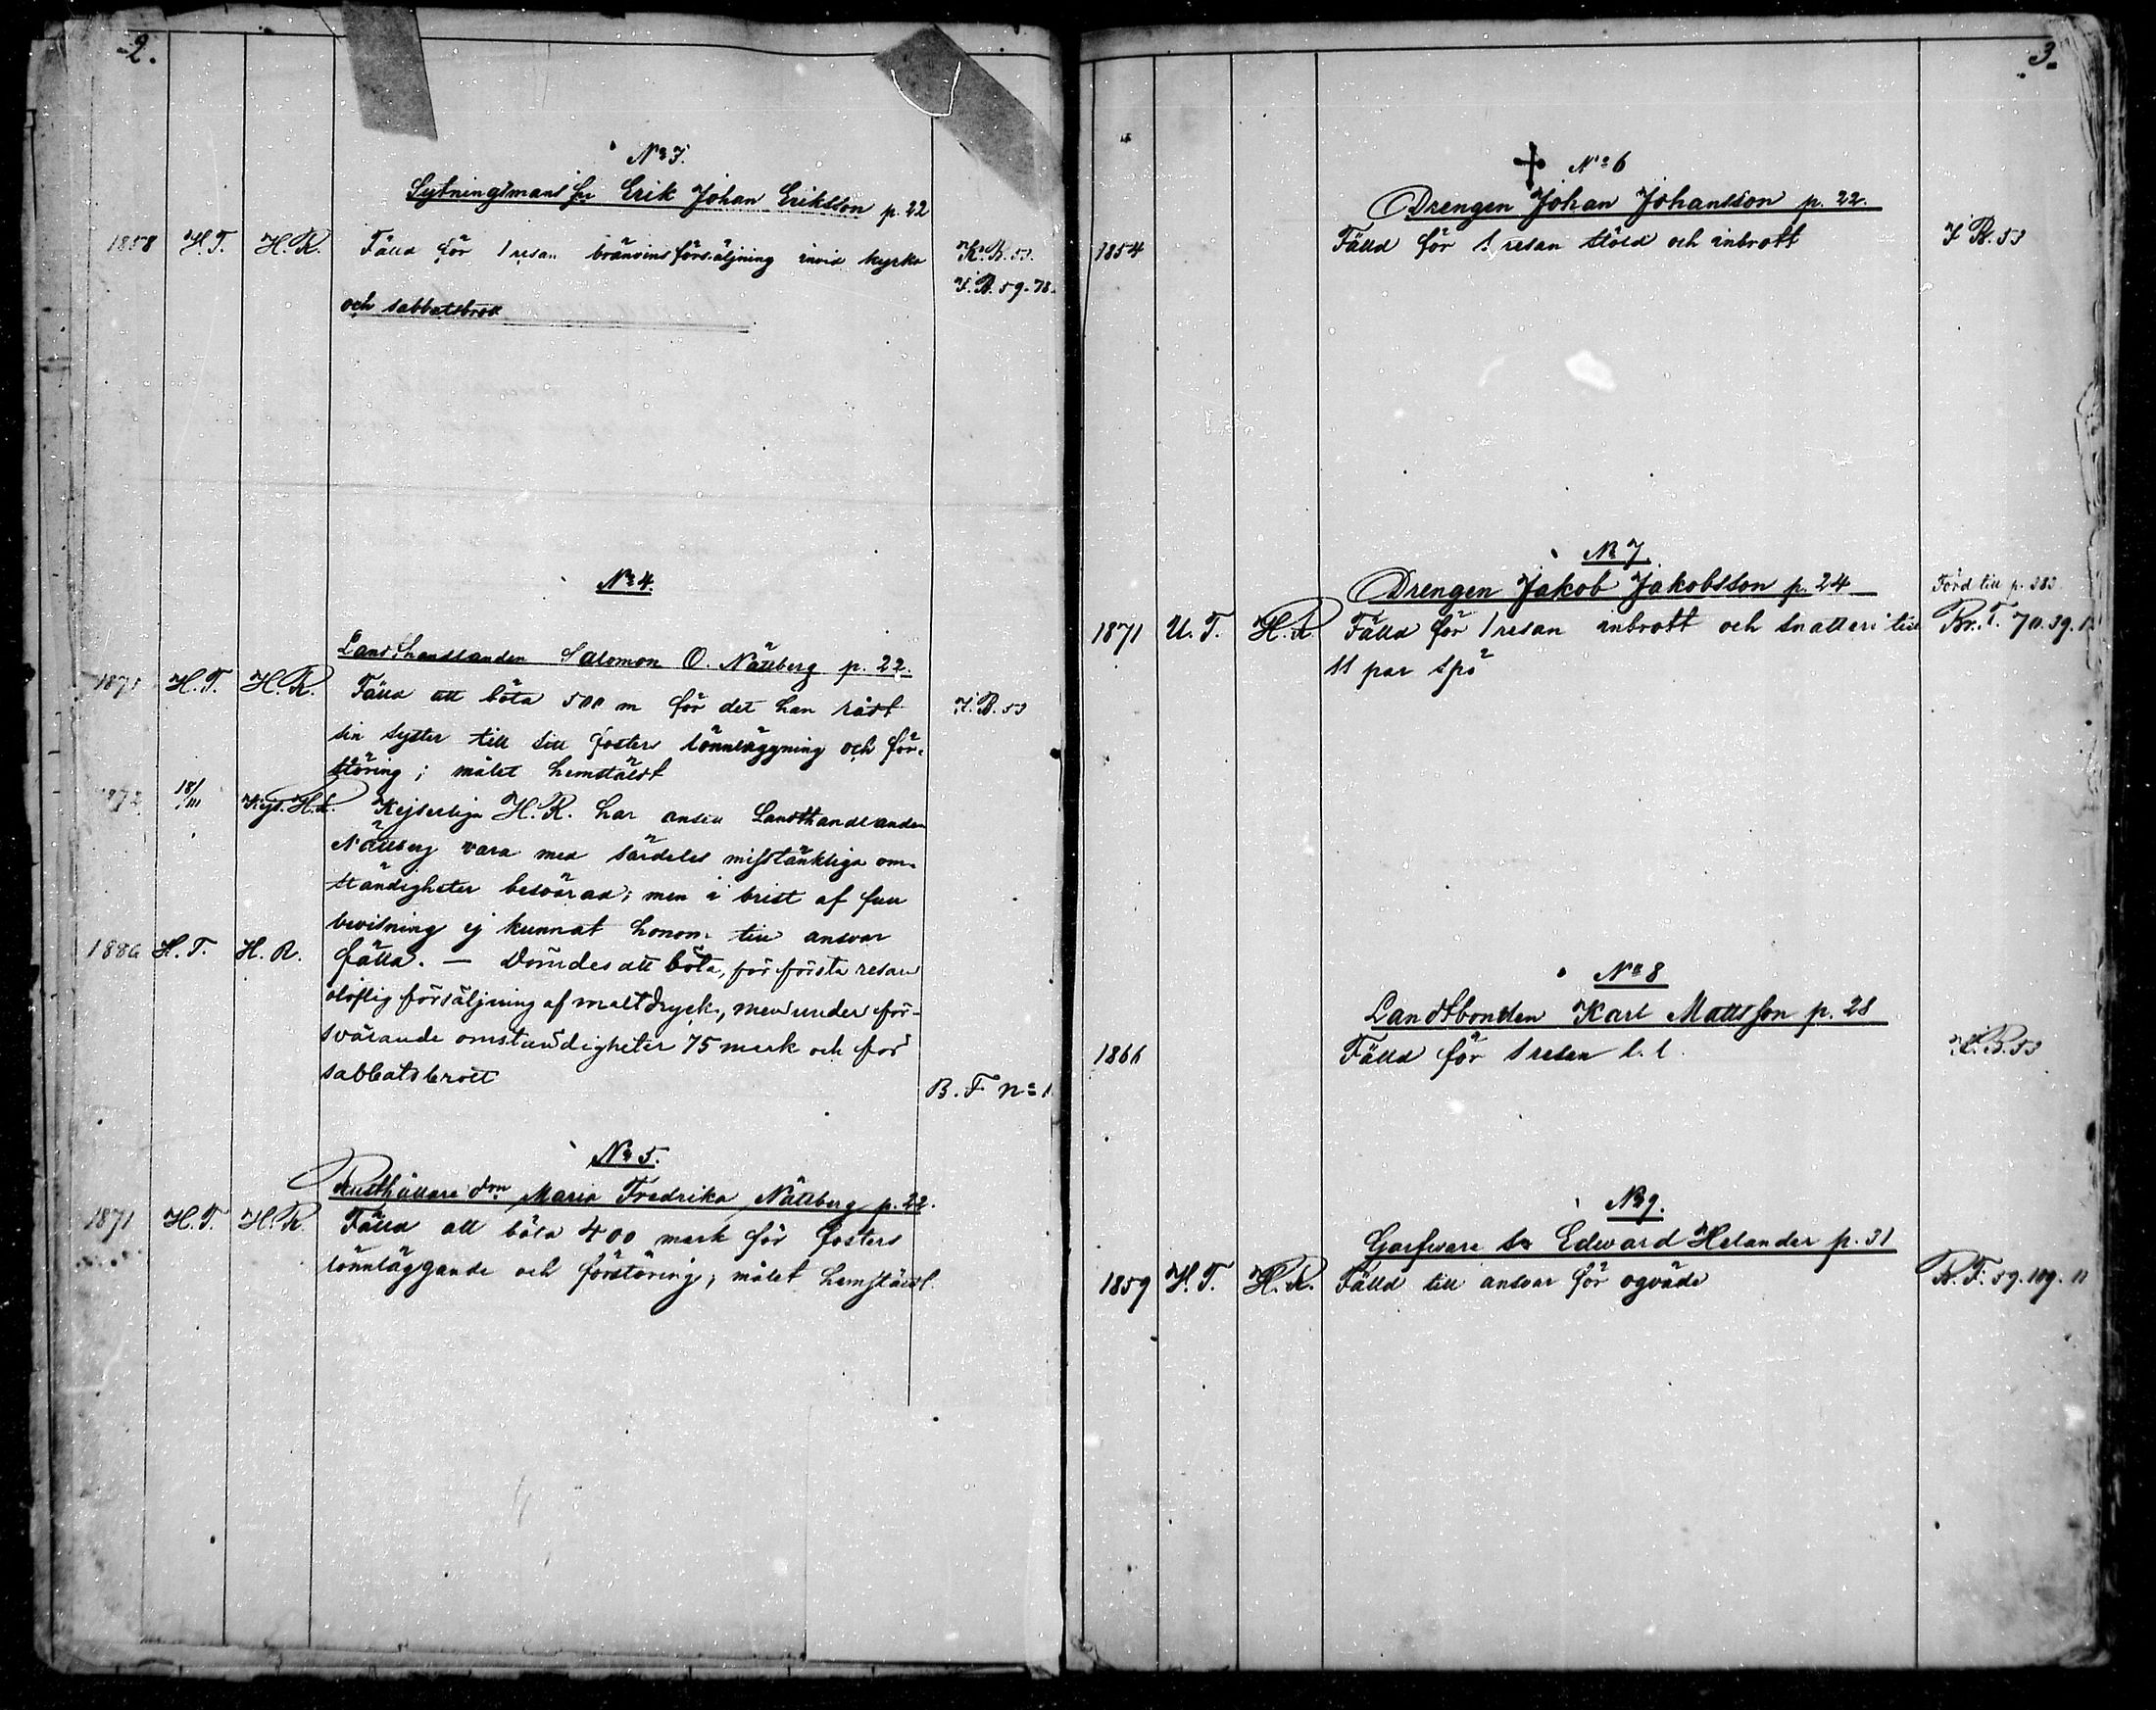 2.
No 3.
Sytningsmans Erik Johan Eriksson p. 22
1858 H.T. H.R. Fälld för 1 resan bränvinsförsäljning invid kyrka K.B. 53.
F.B. 59-78.
och sabbatsbrott
No 4.
Landthandlanden Salomon O. Nättberg p. 22.
1871 H.T. H.R. Fälld att böta 500 m för det han rådt K.B. 53
sin syster till sitt fosters lönnläggning och för-
störing; målet hemstäldt
1872 18/III Kejs. H.R. Kejserliga H.R. har ansett Landthandlanden
Nättberg vara med särdeles misstänkliga om-
ständigheter besvärad; men i brist af full
bevisning ej kunnat honom till ansvar
1886 H.T. H.R. fälla. — Dömdes att böta, för första resan
oloflig försäljning af maltdryck, med under för-
svårande omständigheter 75 mark och för
sabbatsbrott
B.F. No 1
No 5.
Rusthållare drn Maria Fredrika Nättberg p. 22.
1871 H.T. H.R. Fälld att böta 400 mark för fosters
lönnläggande och förstöring; målet hemstäldt.
3.
No 6
Drengen Johan Johansson p. 22.
1854 Fälld för 1 resan stöld och inbrott K.B. 53
No 7.
Drengen Jakob Jakobsson p. 24 Förd till p. 383
1871 U.T. H.R. Fälld för 1 resan inbrott och snatteri till Br.T. 70.39.
11 par spö
No 8
Landtbonden Karl Mattsson p. 28
1866 Fälld för 1 resan l.l. K.B. 53
No 9.
Garfvare Edward Helander p. 31
1859 H.T. H.R. Fälld till ansvar för ogväde B.F. 59.109.11